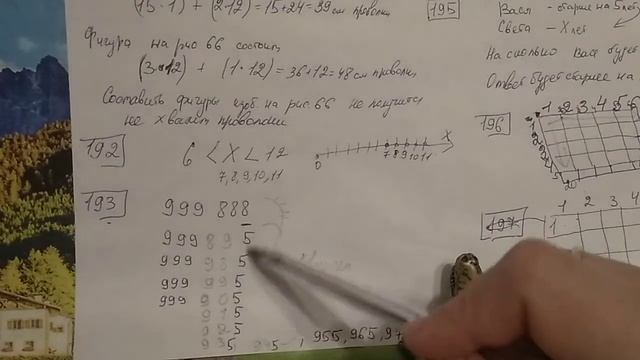 (15·1) + (2·12) = 15+24 = 39 см проволки
Фигура на рис 66 состоит
(3·12) + (1·12) = 36+12 = 48 см проволки
Составить фигуры изоб. на рис 66 не получится
не хватит проволоки
192
6 < X < 12
7,8,9,10,11
0 7 8 9 10 11 X
193
999 888
999 89 5
999 5
999 99 5
999 905
915
925
935
955, 965, 9
195
Вася - старше на 5 лет
Света - X лет
На сколько Вася будет
Ответ будет старше на
196
1 2 3 4 5 6
20
197
1 2 3 4
1